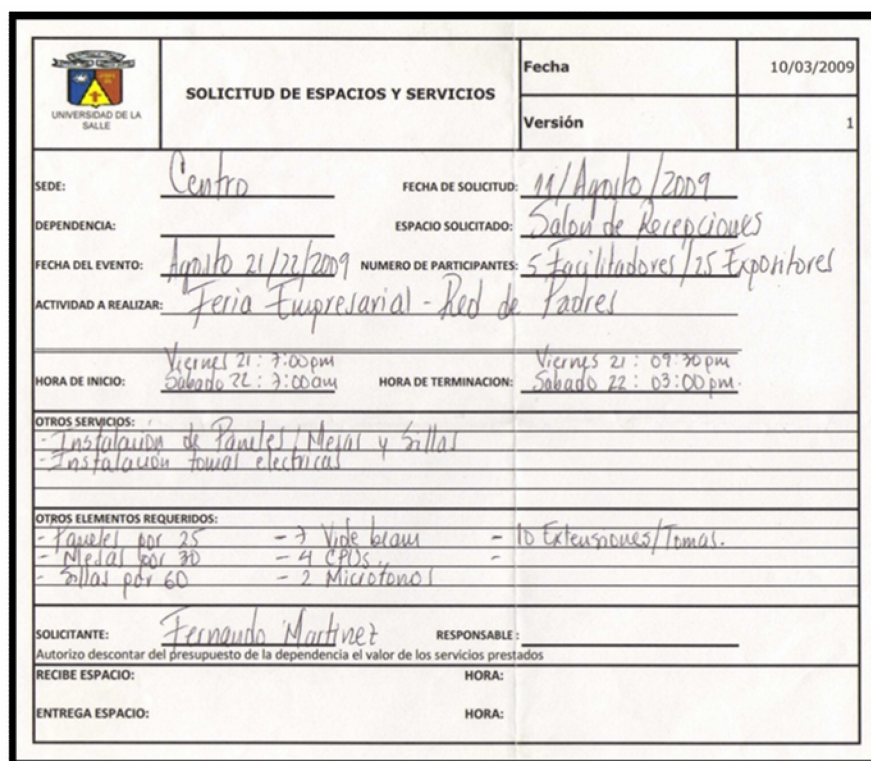 UNIVERSIDAD DE LA
SALLE
SOLICITUD DE ESPACIOS Y SERVICIOS
Fecha 10/03/2009
Versión 1
SEDE: Centro FECHA DE SOLICITUD: 11/Agosto/2009
DEPENDENCIA: ESPACIO SOLICITADO: Salon de Recepciones
FECHA DEL EVENTO: Agosto 21/22/2009 NUMERO DE PARTICIPANTES: 5 Facilitadores/25 Expositores
ACTIVIDAD A REALIZAR: Feria Empresarial - Red de Padres
Viernes 21: 7:00pm Viernes 21: 09:30pm
HORA DE INICIO: Sabado 22: 7:00am HORA DE TERMINACION: Sabado 22: 03:00pm.
OTROS SERVICIOS:
- Instalación de Paneles/Mesas y Sillas
- Instalación tomas electricas
OTROS ELEMENTOS REQUERIDOS:
- Paneles por 25 - 7 Vide beam - 10 Extensiones/Tomas.
- Mesas por 30 - 4 CPUs.. -
- Sillas por 60 - 2 Microfonos
SOLICITANTE: Fernando Martinez RESPONSABLE :
Autorizo descontar del presupuesto de la dependencia el valor de los servicios prestados
RECIBE ESPACIO: HORA:
ENTREGA ESPACIO: HORA: